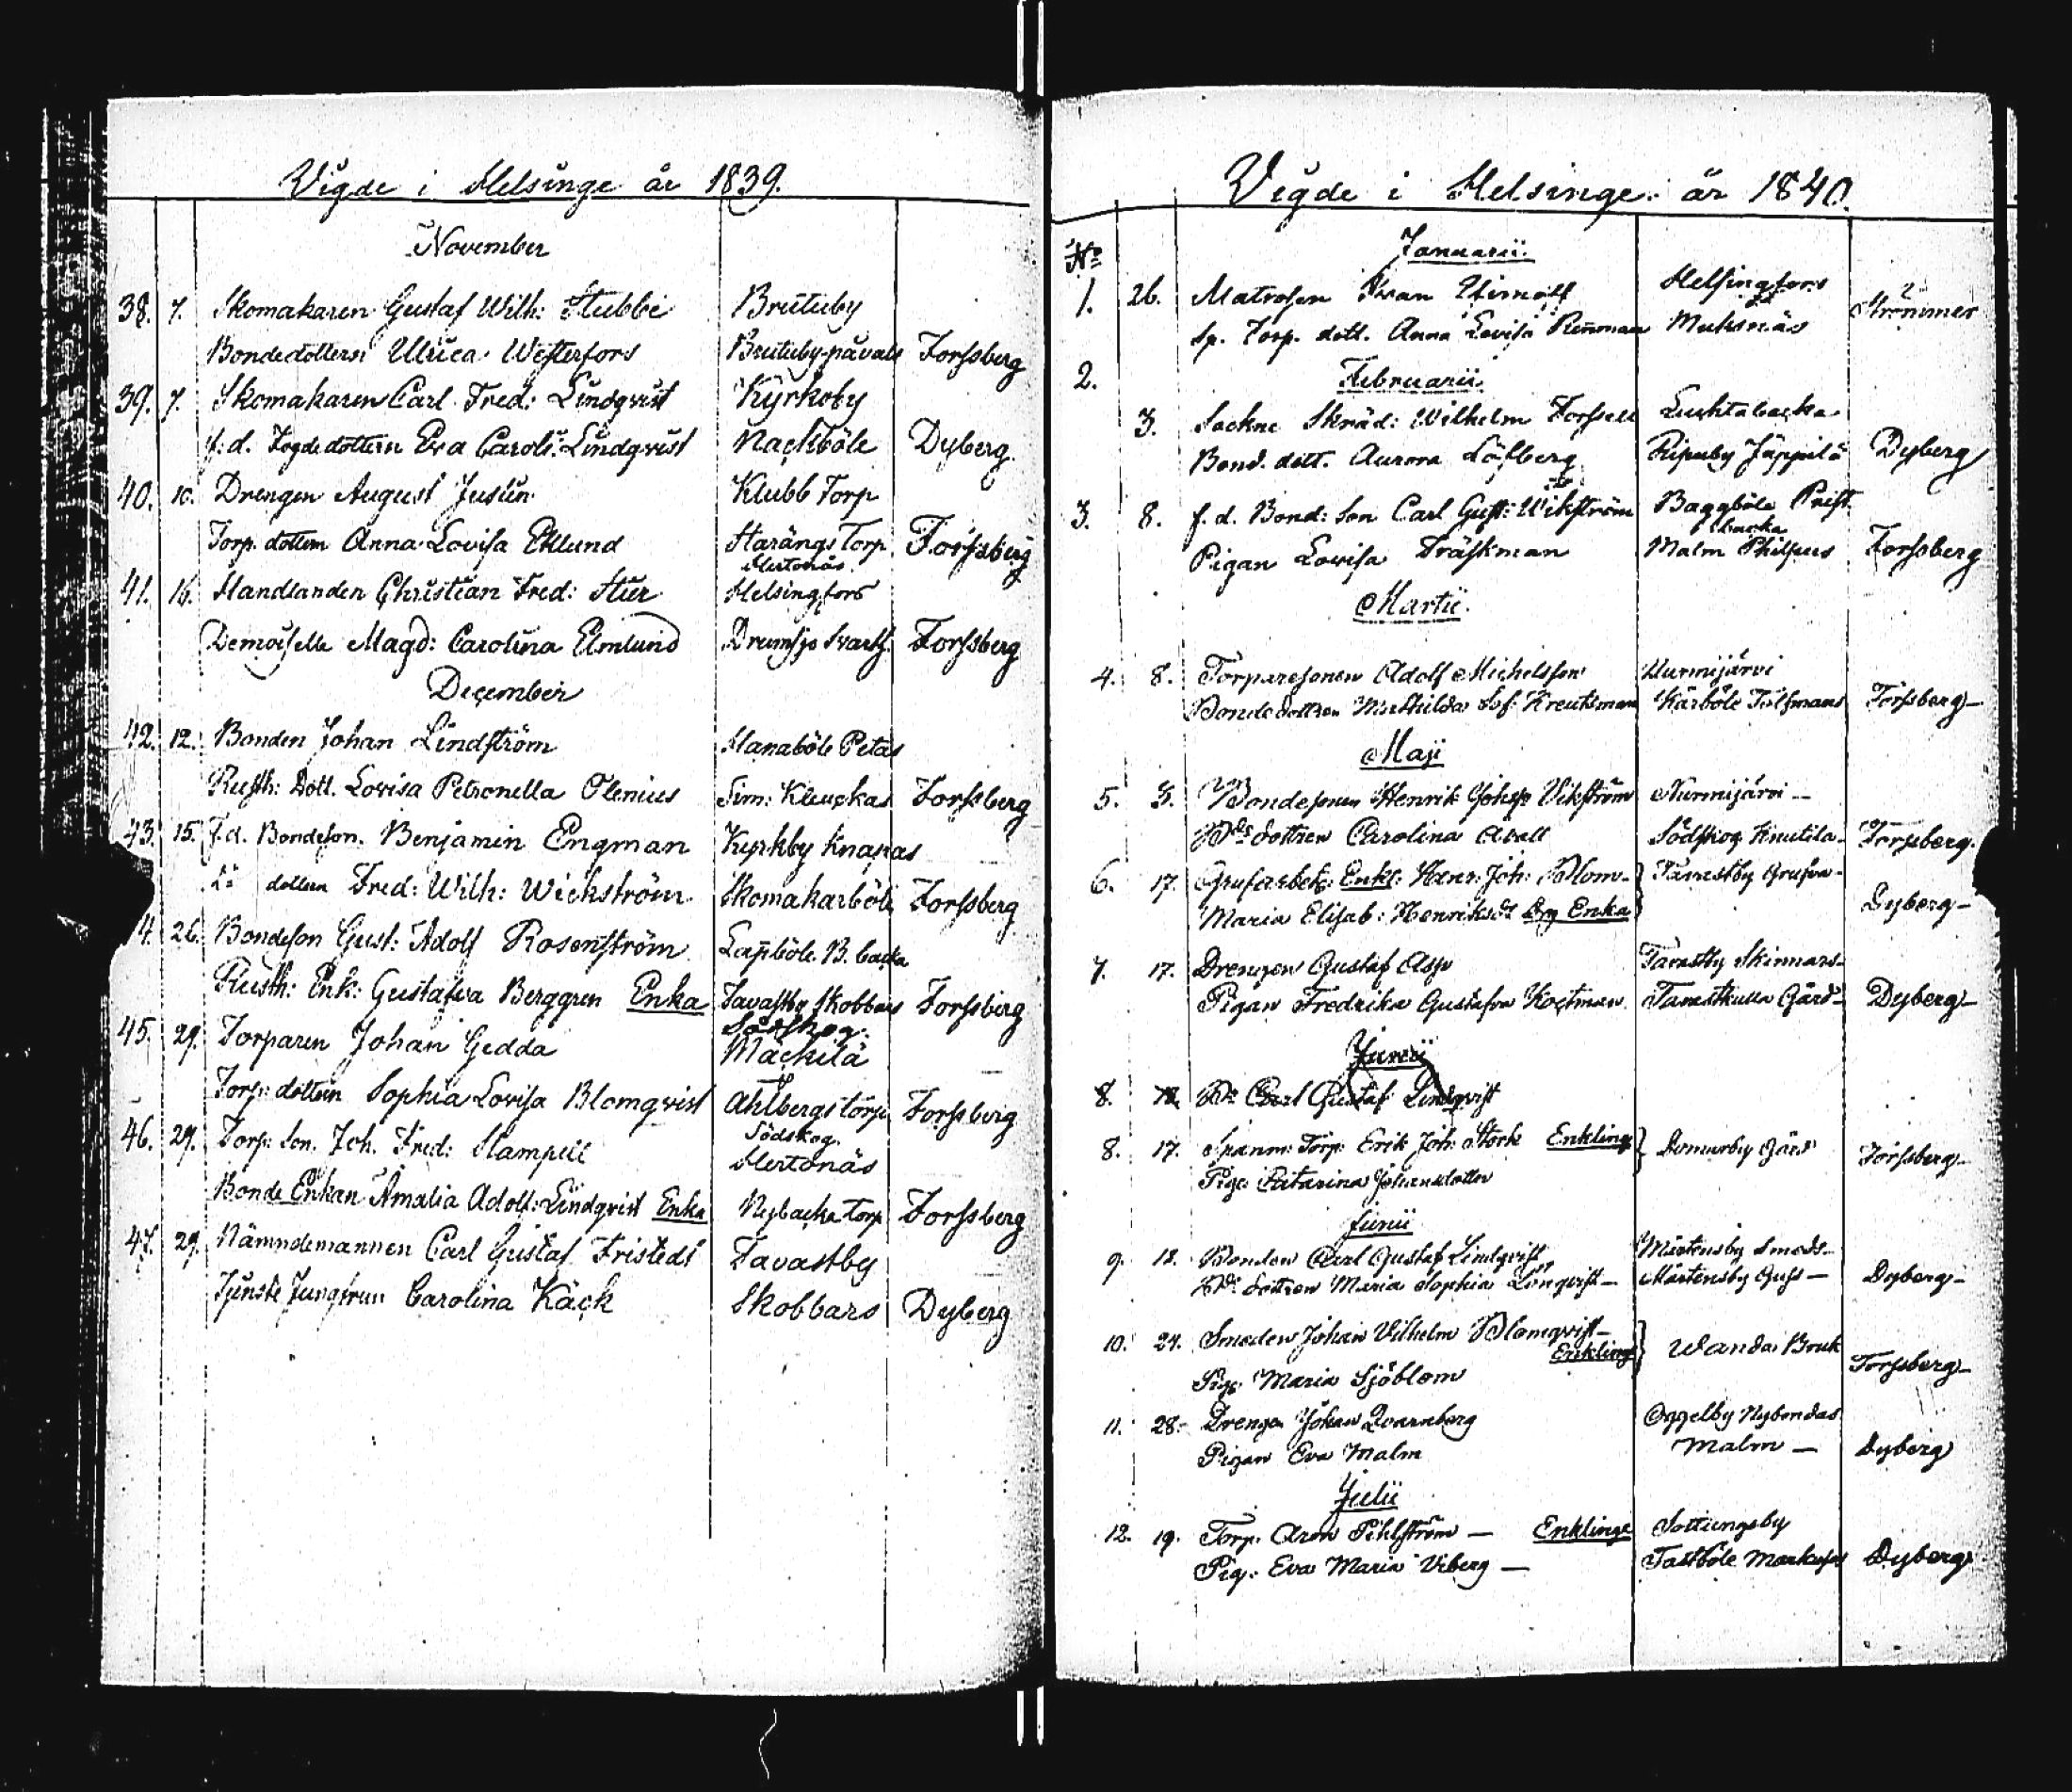 Vigde i Helsinge år 1839.
November
38. 7. Skomakaren Gustaf Wilh: Stubbe Brutuby
Bondedottern Ulrica Westerfors Brutuby Forssberg
39. 7. Skomakaren Carl Fred: Lindqvist Kyrkoby
f. d. dottern Eva Carol: Lindqvist Nackböle Dyberg
40. 10. Drengen August Juslin Klubb Torp
Torp. dottern Anna Lovisa Eklund Torp Forssberg
Hertonäs.
41. 16. Handlanden Christian Fred: Helsingfors
Demoiselle Magd: Carolina Elmlund Drumsjo Forssberg
December
42. 12. Bonden Johan Lindström Hanaböle Petas
Rusth: Dott. Lovisa Petronella Olenius Sim: Forssberg
43. 15. f. d. Bondeson. Benjamin Engman Kyrkby Knapas
dottern Fred: Wilh: Wickström Skomakarböle Forssberg
4. 26. Bondeson Gust: Adolf Rosenström Lappböle B. backa
Rusth: Enk: Gustafva Berggren Enka Tavastby Skobbars Forssberg
Södskog.
45. 29. Torparen Johan Gedda Mackilä
Torp: dottern Sophia Lovisa Blomqvist Ahlbergs torp Forssberg
Södskog
46. 29. Torp: Son. Joh. Fred: Hertonäs
Bonde Enkan Amalia Adolf: Lindqvist Enka Nybacka Torp Forssberg
47. 29. Nämndemannen Carl Gustaf Fristedt Tavastby
Jungfrun Carolina Käck Skobbars Dyberg
Vigde i Helsinge år 1840.
No
Januarii.
1. 26. Matrosen Iwan Helsingfors
Sp. Torp. dott. Anna Lovisa Munksnäs Strömmer
2. Februarii.
3. Sockne Skräd: Wilhelm Forssell
Bond. dott. Aurora Löfberg Ripuby Jäppilä Dyberg
3. 8. f. d. Bond: Son Carl Gust: Wikström Baggböle
backa
Pigan Lovisa Träskman Malm Philpus Forssberg
Martii.
4. 8. Torparesonen Adolf Michelsson Nurmijärvi
Bondedottren Mathilda Sof: Kreutsman Kårböle Tolfmans Forssberg
Maji
5. 3. Bondesonen Henrik Johss Vikström Nurmijärvi
Bds dottren Carolina Södskog Knutila Forssberg.
6. 17. Grufarbet: Enkl: Henr: Joh: Blom Tavastby Grufva
Maria Elisab: Henriksdr Enka Dyberg
7. 17. Drengen Gustaf Asp Tavastby Skinnars
Pigan Fredrika Gustafva Tavastkulla Gård Dyberg
Junii
8. Carl Gustaf Lindqvist
8. 17. Torp: Erik Joh: Stock Enkling Domarby Gård
Piga Catarina Johansdotter Forssberg
Junii
9. 18. Bonden Carl Gustaf Lindqvist Mårtensby Smeds
Bds dottren Maria Sophia Lönqvist Mårtensby Guss Dyberg
10. 24. Smeden Johan Vilhelm Blomqvist
Enkling Wanda Bruk
Pig: Maria Sjöblom Forssberg
11. 28. Drengen Johan Qvarnberg Oggelby Nybondas
Pigan Eva Malm Malm Dyberg
Julii
12. 19. Torp. Aron Pihlström Enkling Sottungsby
Pig: Eva Maria Viberg Tastböle Dyberg